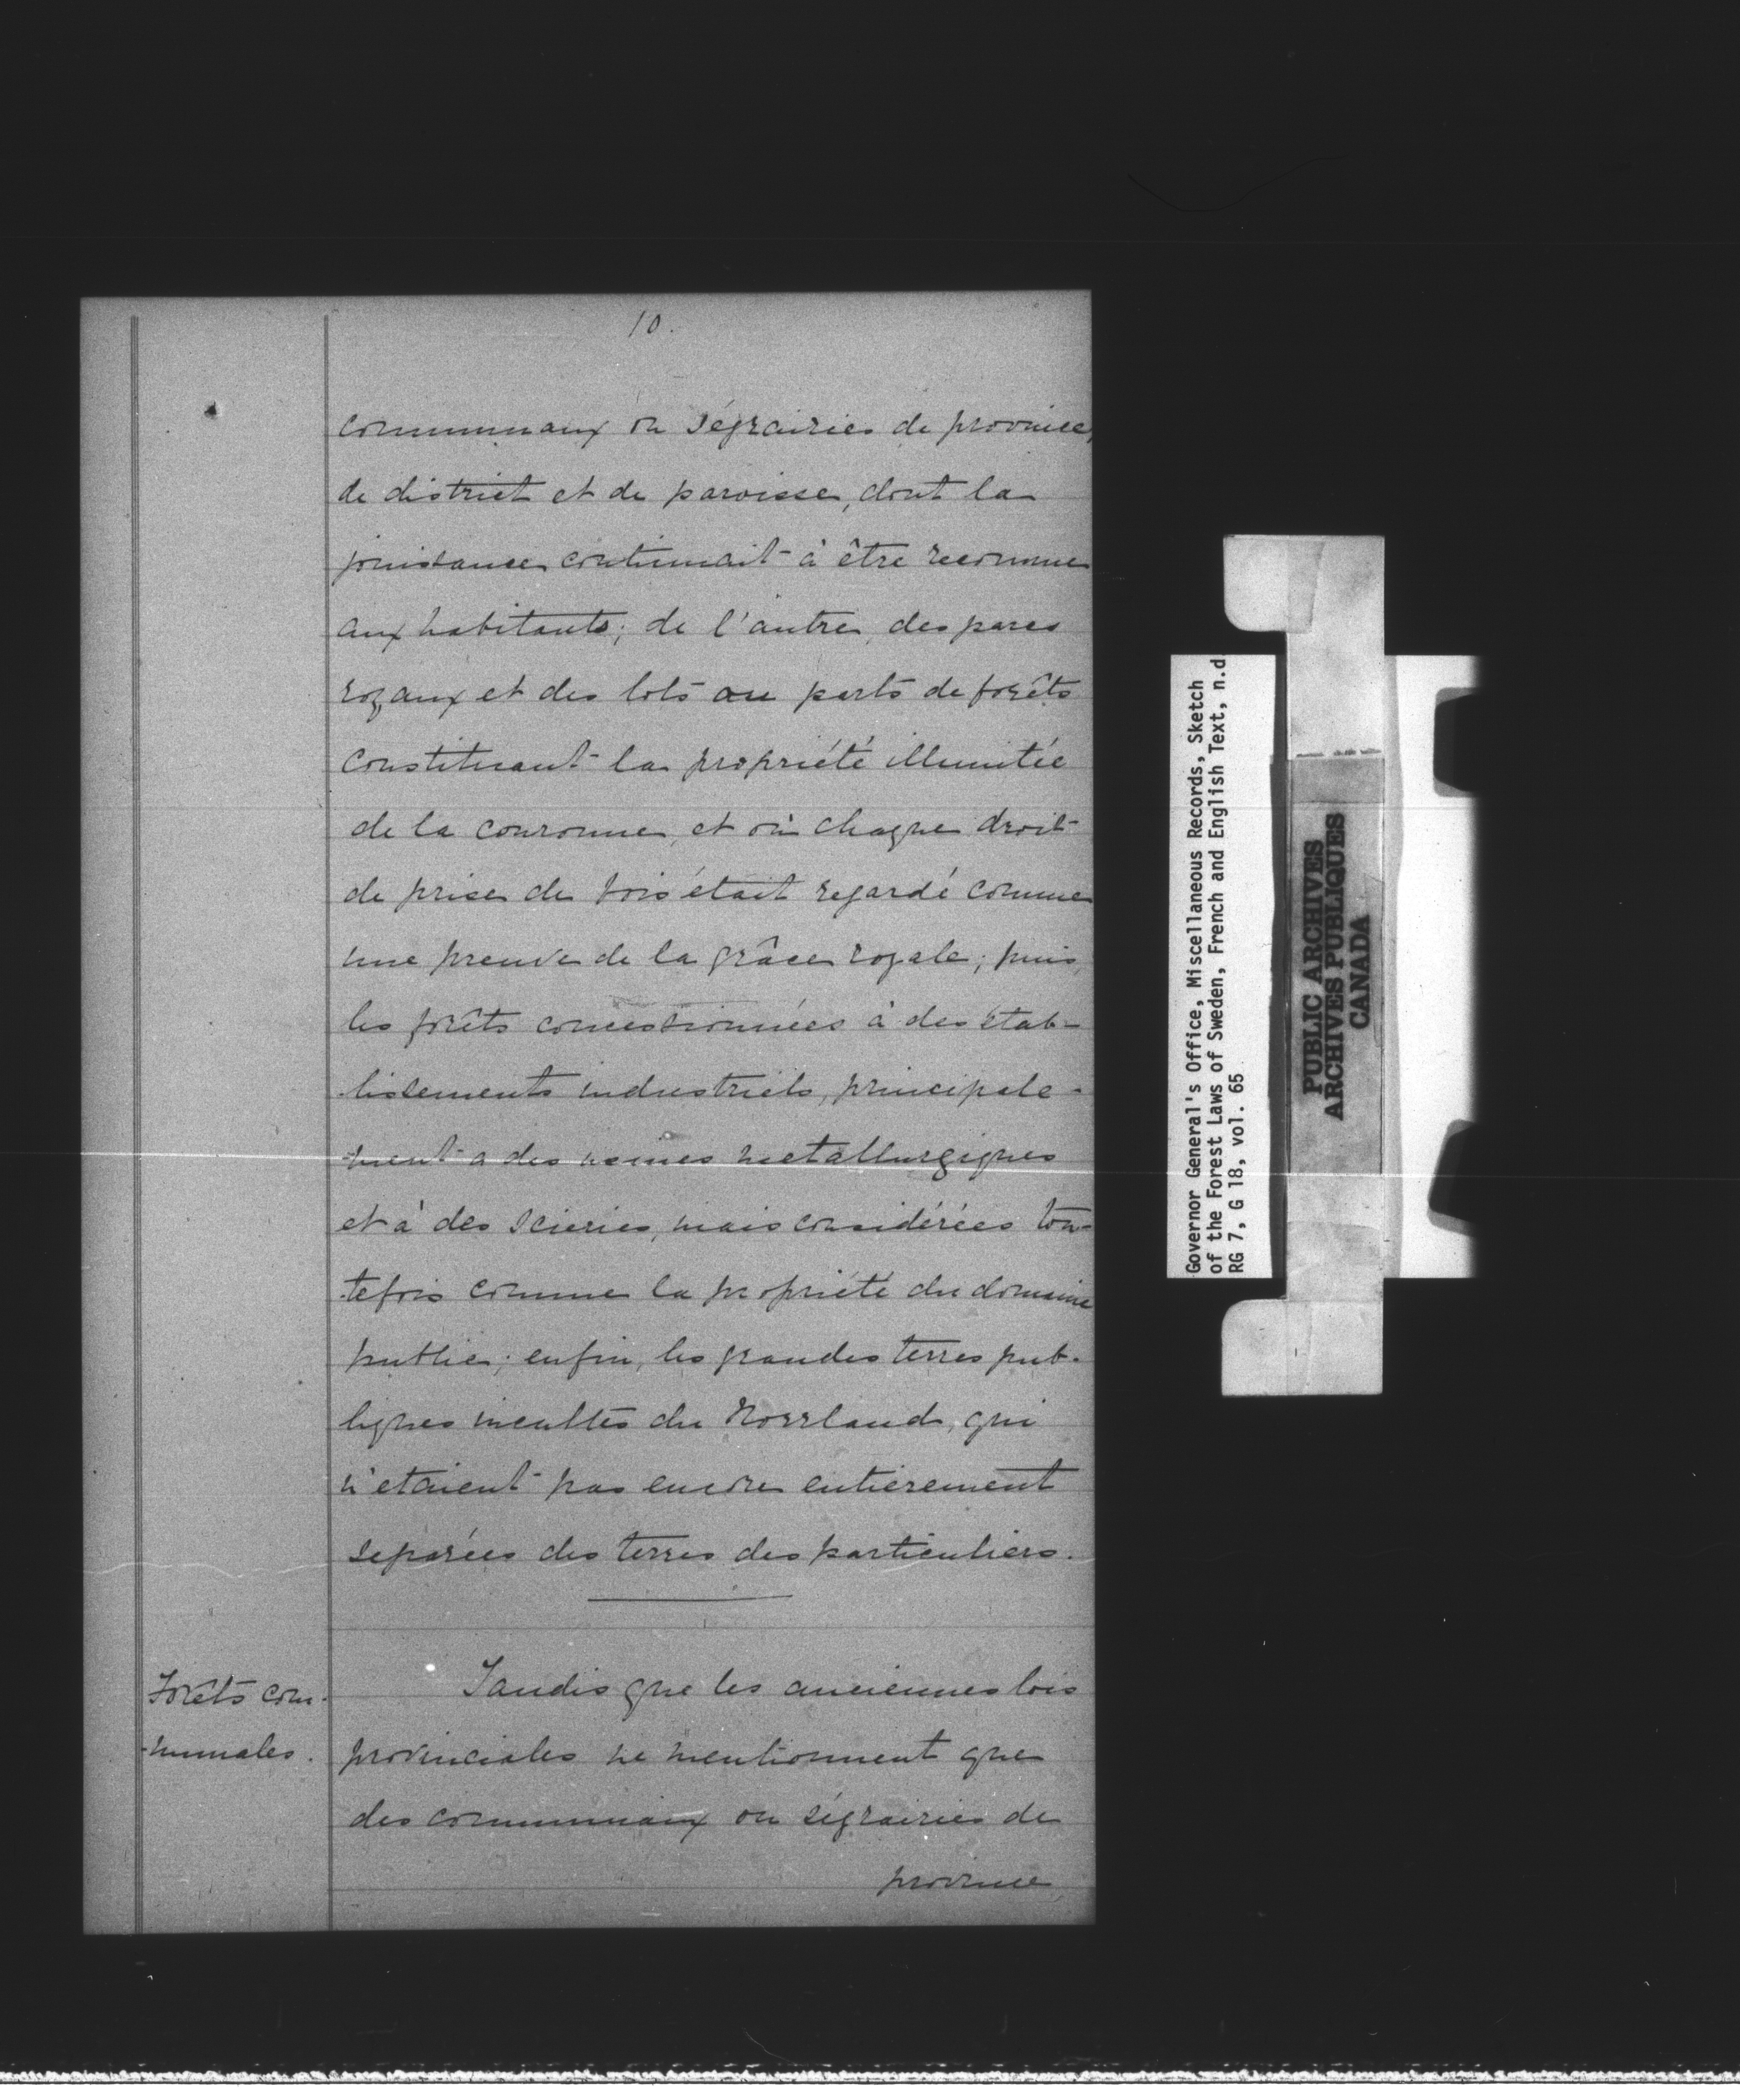 10.
communaux ou ségrairies de province,
de district et de paroisse, dont la
jouissance continuait à être reconnue
aux habitants; de l'autre, des parcs
royaux et des lots ou parts de forêts
constituant la propriété illimitée
de la couronne, et où chaque droit
de prise de bois était regardé comme
une preuve de la grâce royale; puis,
les forêts concessionnées à des étab-
lissements industriels, principale-
-ment a des usines metallurgiques
et à des scieries, mais considérées tou-
-tefois comme la propriété du domaine
public; enfin, les grandes terres pub-
liques incultes du Norrland, qui
n'etaient pas encore entierement
separées des terres des particuliers.
Forêts com-
-munales.
Tandis que les anciennes lois
provinciales ne mentionnent que
des communaux ou ségrairies de
province
Governor General's Office, Miscellaneous Records, Sketch
of the Forest Laws of Sweden, French and English Text, n.d
RG 7, G 18, vol. 65
PUBLIC ARCHIVES
ARCHIVES PUBLIQUES
CANADA